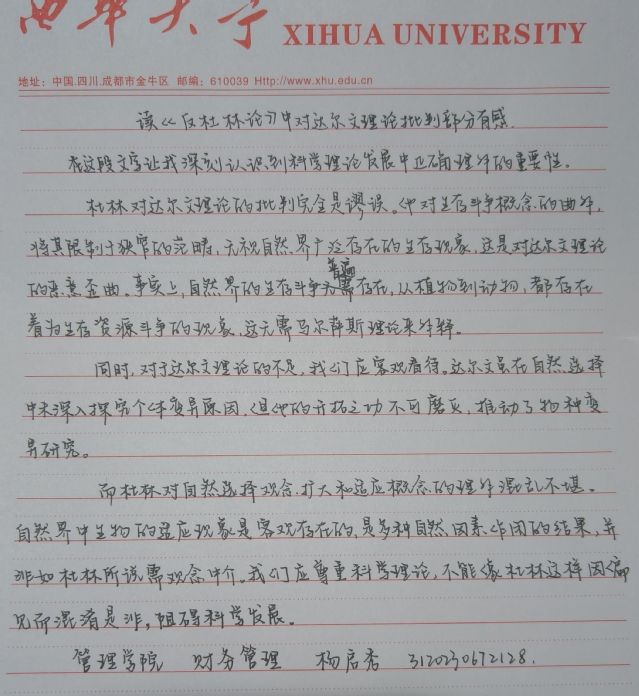 西华大学 XIHUA UNIVERSITY
地址：中国.四川.成都市金牛区 邮编：610039 Http://www.xhu.edu.cn
读《反杜林论》中对达尔文理论批判部分有感.
在这段文字让我深刻认识到科学理论发展中正确理解的重要性。
杜林对达尔文理论的批判完全是谬误。他对生存斗争概念的曲解,
将其限制于狭窄的范畴,无视自然界广泛存在的生存现象,这是对达尔文理论
的恶意歪曲。事实上,自然界的生存斗争普遍存在,从植物到动物,都存在
着为生存资源斗争的现象,这无需马尔萨斯理论来解释。
同时,对于达尔文理论的不足,我们应客观看待。达尔文虽在自然选择
中未深入探究个体变异原因,但他的开拓之功不可磨灭,推动了物种变
异研究。
而杜林对自然选择观念.扩大和适应概念的理解混乱不堪。
自然界中生物的适应现象是客观存在的,是多种自然因素作用的结果,并
非如杜林所说需观念中介。我们应尊重科学理论,不能像杜林这样因偏
见而混淆是非,阻碍科学发展。
管理学院 财务管理 杨启秀 3120230672128.